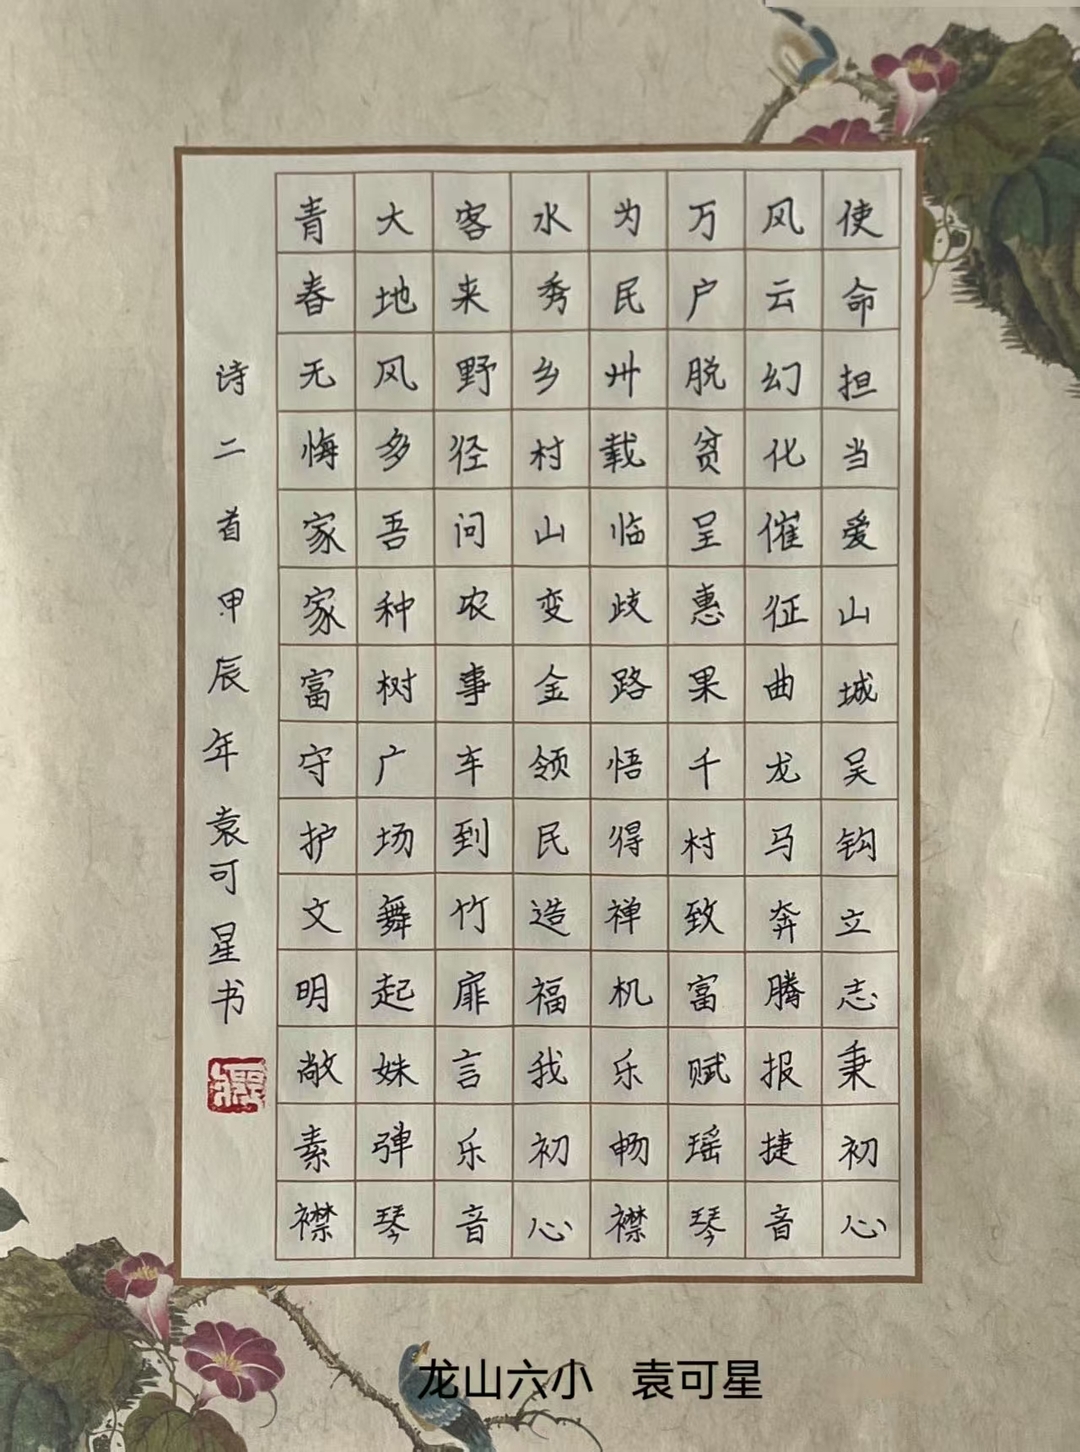 使命担当爱山城吴钩立志秉初心
风云幻化催征曲龙马奔腾报捷音
万户脱贫呈惠果千村致富赋瑶琴
为民卅载临歧路悟得禅机乐畅襟
水秀乡村山变金领民造福我初心
客来野径问农事车到竹扉言乐音
大地风多吾种树广场舞起姝弹琴
青春无悔家家富守护文明敞素襟
诗二首甲辰年袁可星书
龙山六小 袁可星